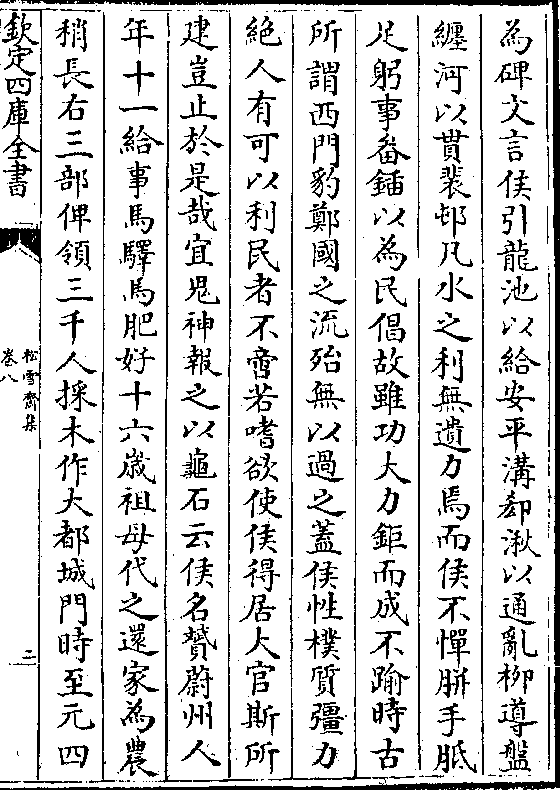 為碑文言侯引龍池以給安平溝郄湫以通亂栁導盤
纒河以貫裴邨凡水之利無遺力焉而侯不憚胼手胝
足躬事畚鍤以為民倡故雖功大力鉅而成不踰時古
所謂西門豹鄭國之流殆無以過之蓋侯性樸質彊力
絶人有可以利民者不啻若嗜欲使侯得居大官斯所
建豈止於是哉宜鬼神報之以龜石云侯名贇蔚州人
年十一給事馬驛馬肥好十六歲祖母代之還家為農
稍長右三部俾領三千人採木作大都城門時至元四
欽定四庫全書
松雪齋集
卷八
二